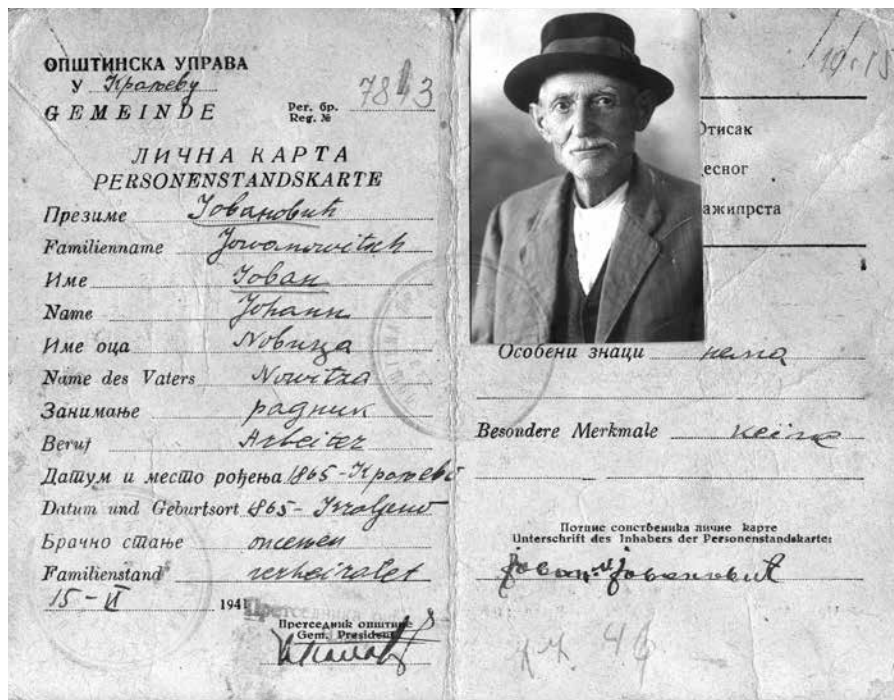 ОПШТИНСКА УПРАВА
У Краљеву
GEMEINDE
Рег. бр.
Reg. №
7813
ЛИЧНА КАРТА
PERSONENSTANDSKARTE
Презиме Јовановић
Familienname Jowanowitsch
Име Јован
Name Johann
Име оца Новица
Name des Vaters Nowitza
Занимање радник
Beruf Arbeiter
Датум и место рођења 1865 - Краљево
Datum und Geburtsort 865 - Kraljewo
Брачно стање ожењен
Familienstand verheiratet
15 - VI 194
Претседник општине
Gem. President
Отисак
десног
кажипрста
Особени знаци нема
Besondere Merkmale keine
Потпис сопственика личне карте
Unterschrift des Inhabers der Personenstandskarte:
Јован Јовановић